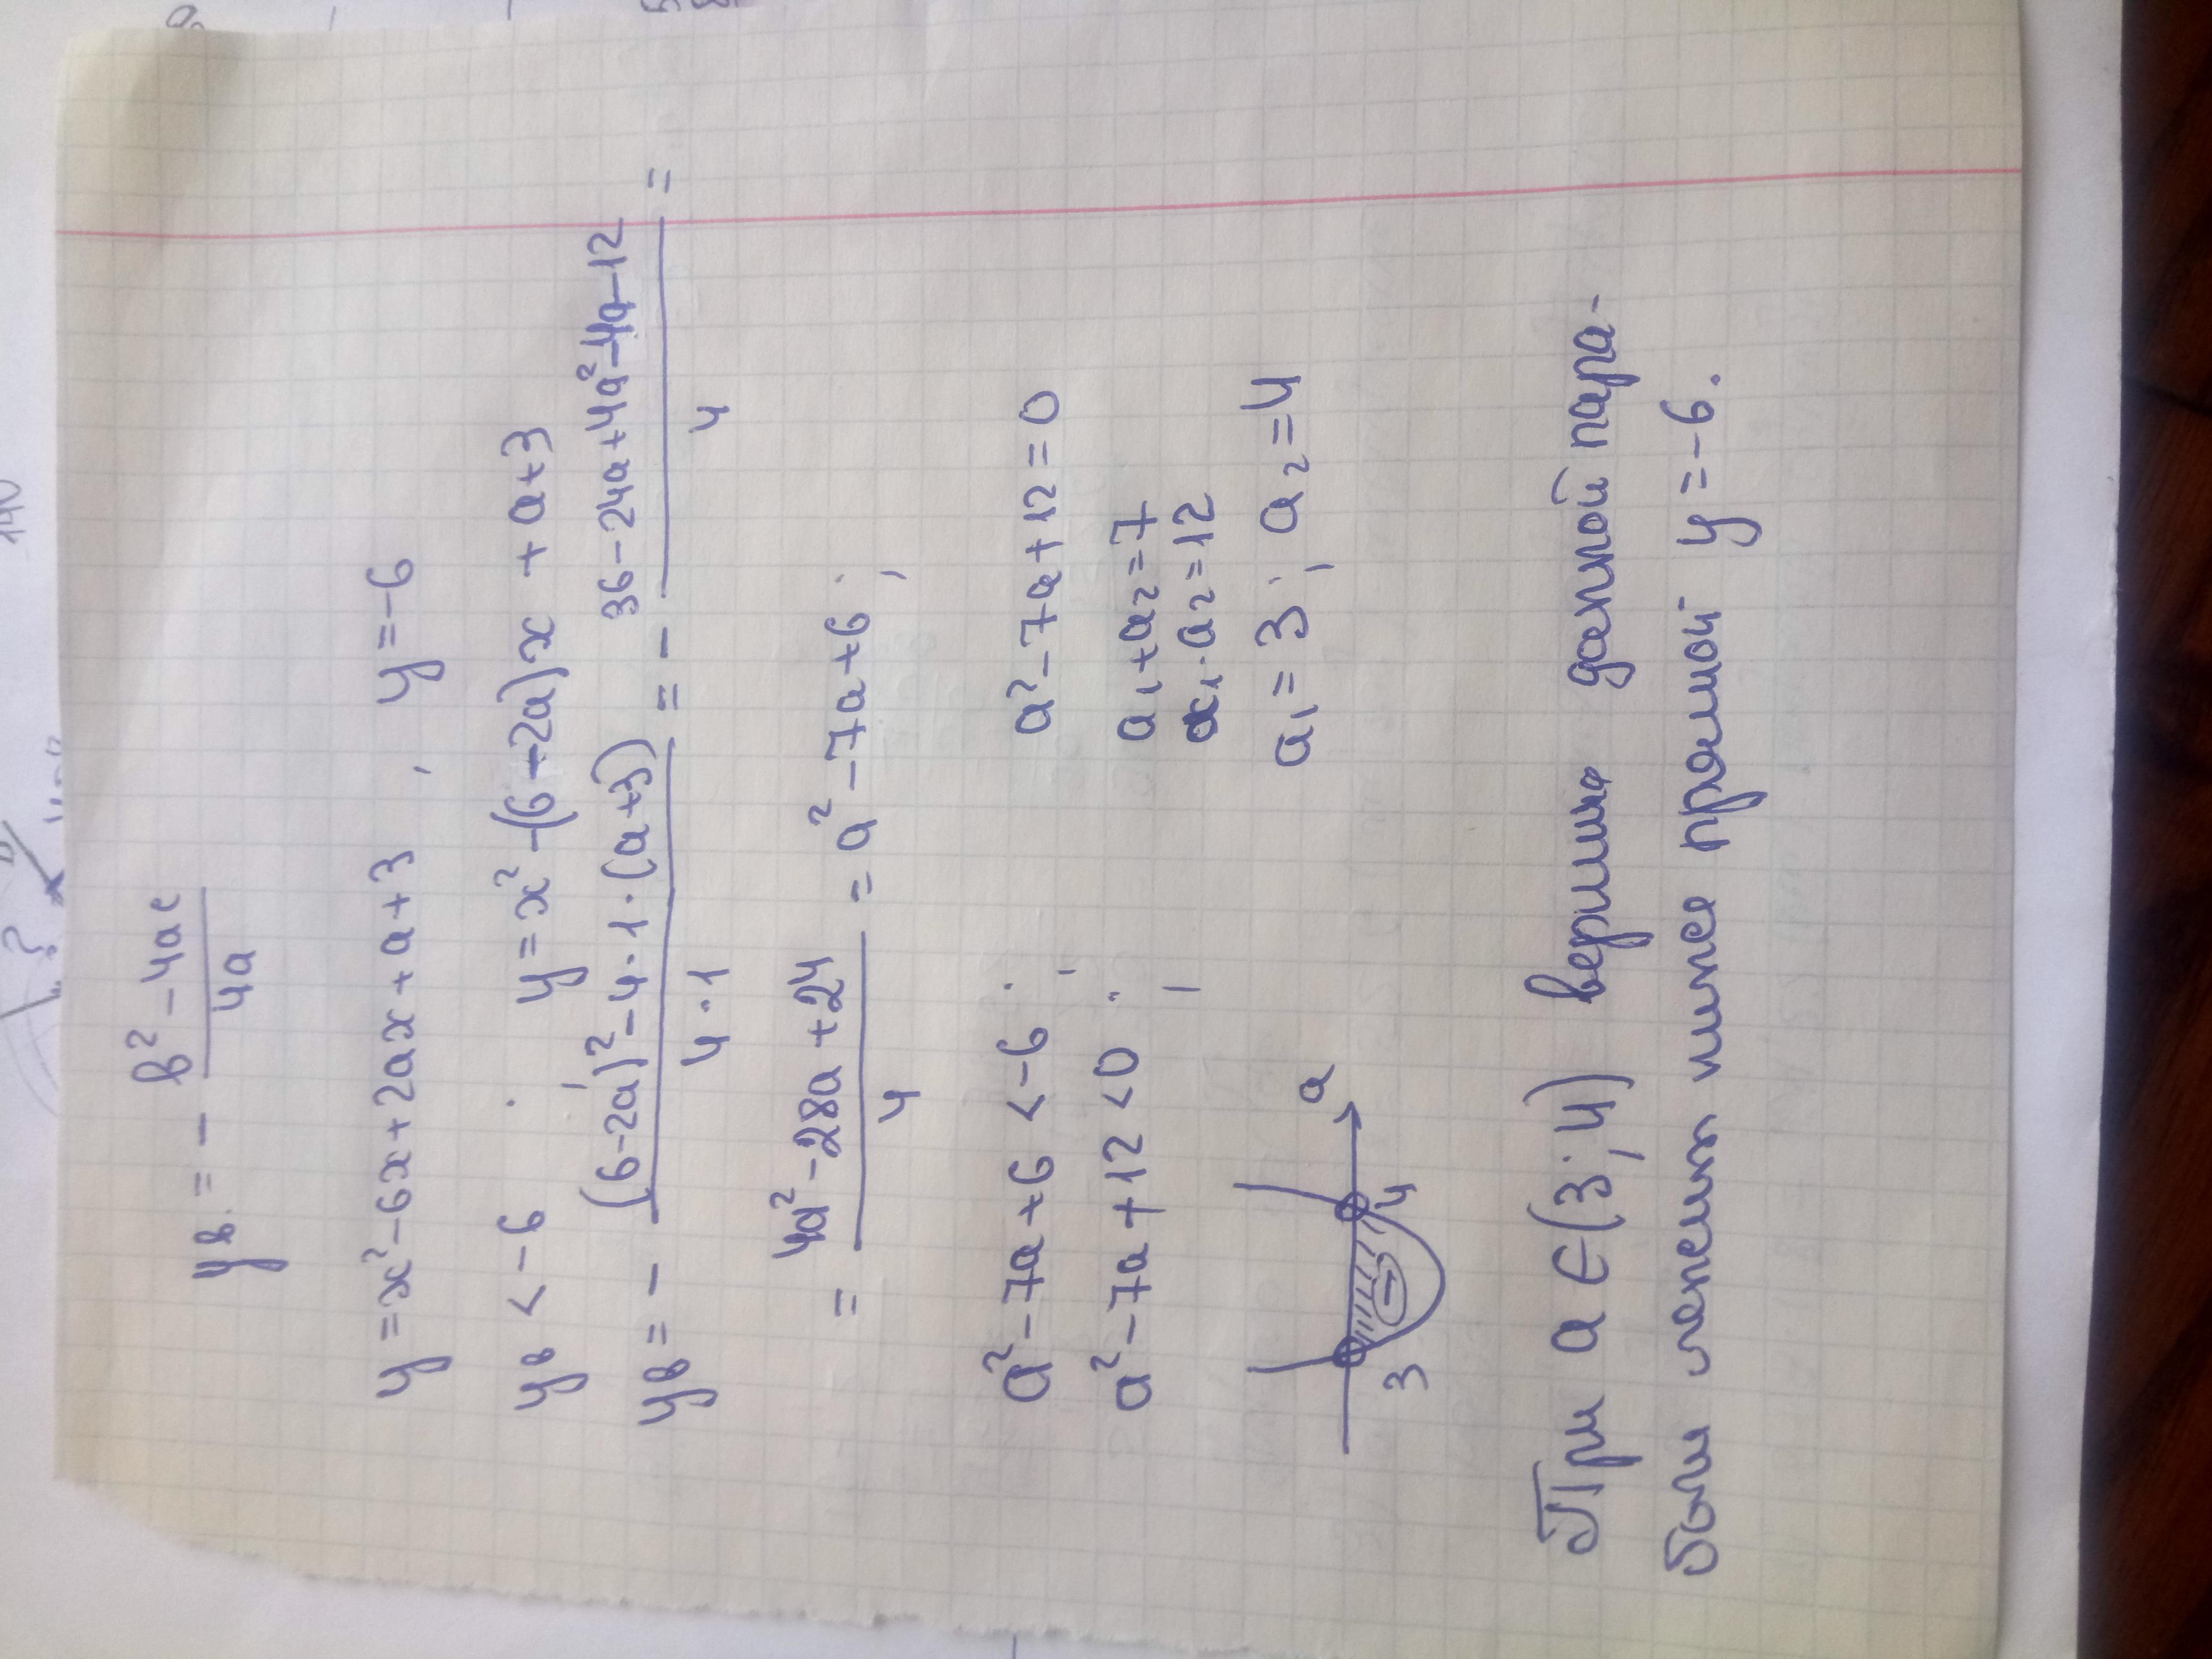 yв = - (в² - 4ac)/(4a)
y = x² - 6x + 2ax + a + 3, y = -6
yв < -6; y = x² - (6 - 2a)x + a + 3
yв = - ((6-2a)² - 4·1·(a+3))/(4·1) = - (36 - 24a + 4a² - 4a - 12)/4 =
= (4a² - 28a + 24)/4 = a² - 7a + 6;
a² - 7a + 6 < -6; a² - 7a + 12 = 0
a² - 7a + 12 < 0; a₁ + a₂ = 7
a₁ · a₂ = 12
a₁ = 3; a₂ = 4
3 - 4 a
При a ∈ (3; 4) вершина данной пара-
болы лежит ниже прямой y = -6.